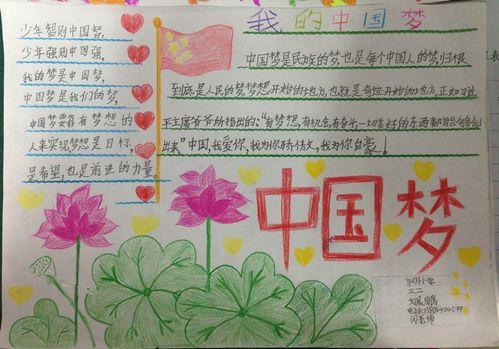 我的中国梦
少年智则中国智,
少年强则中国强,
我的梦是中国梦,
中国梦是我们的梦,
中国梦要靠有梦想的
人来实现梦想是目标,
是希望,也是前进的力量。
中国梦是民族的梦,也是每个中国人的梦,归根
到底是人民的梦梦想开始的地方,也就是奇迹开始的地方,正如习近
平主席爷爷所指出的:“有梦想,有机会,有奋斗,一切美好的东西都能够创造
出来”中国,我爱你,我为你骄傲,我为你自豪!
中国梦
三二